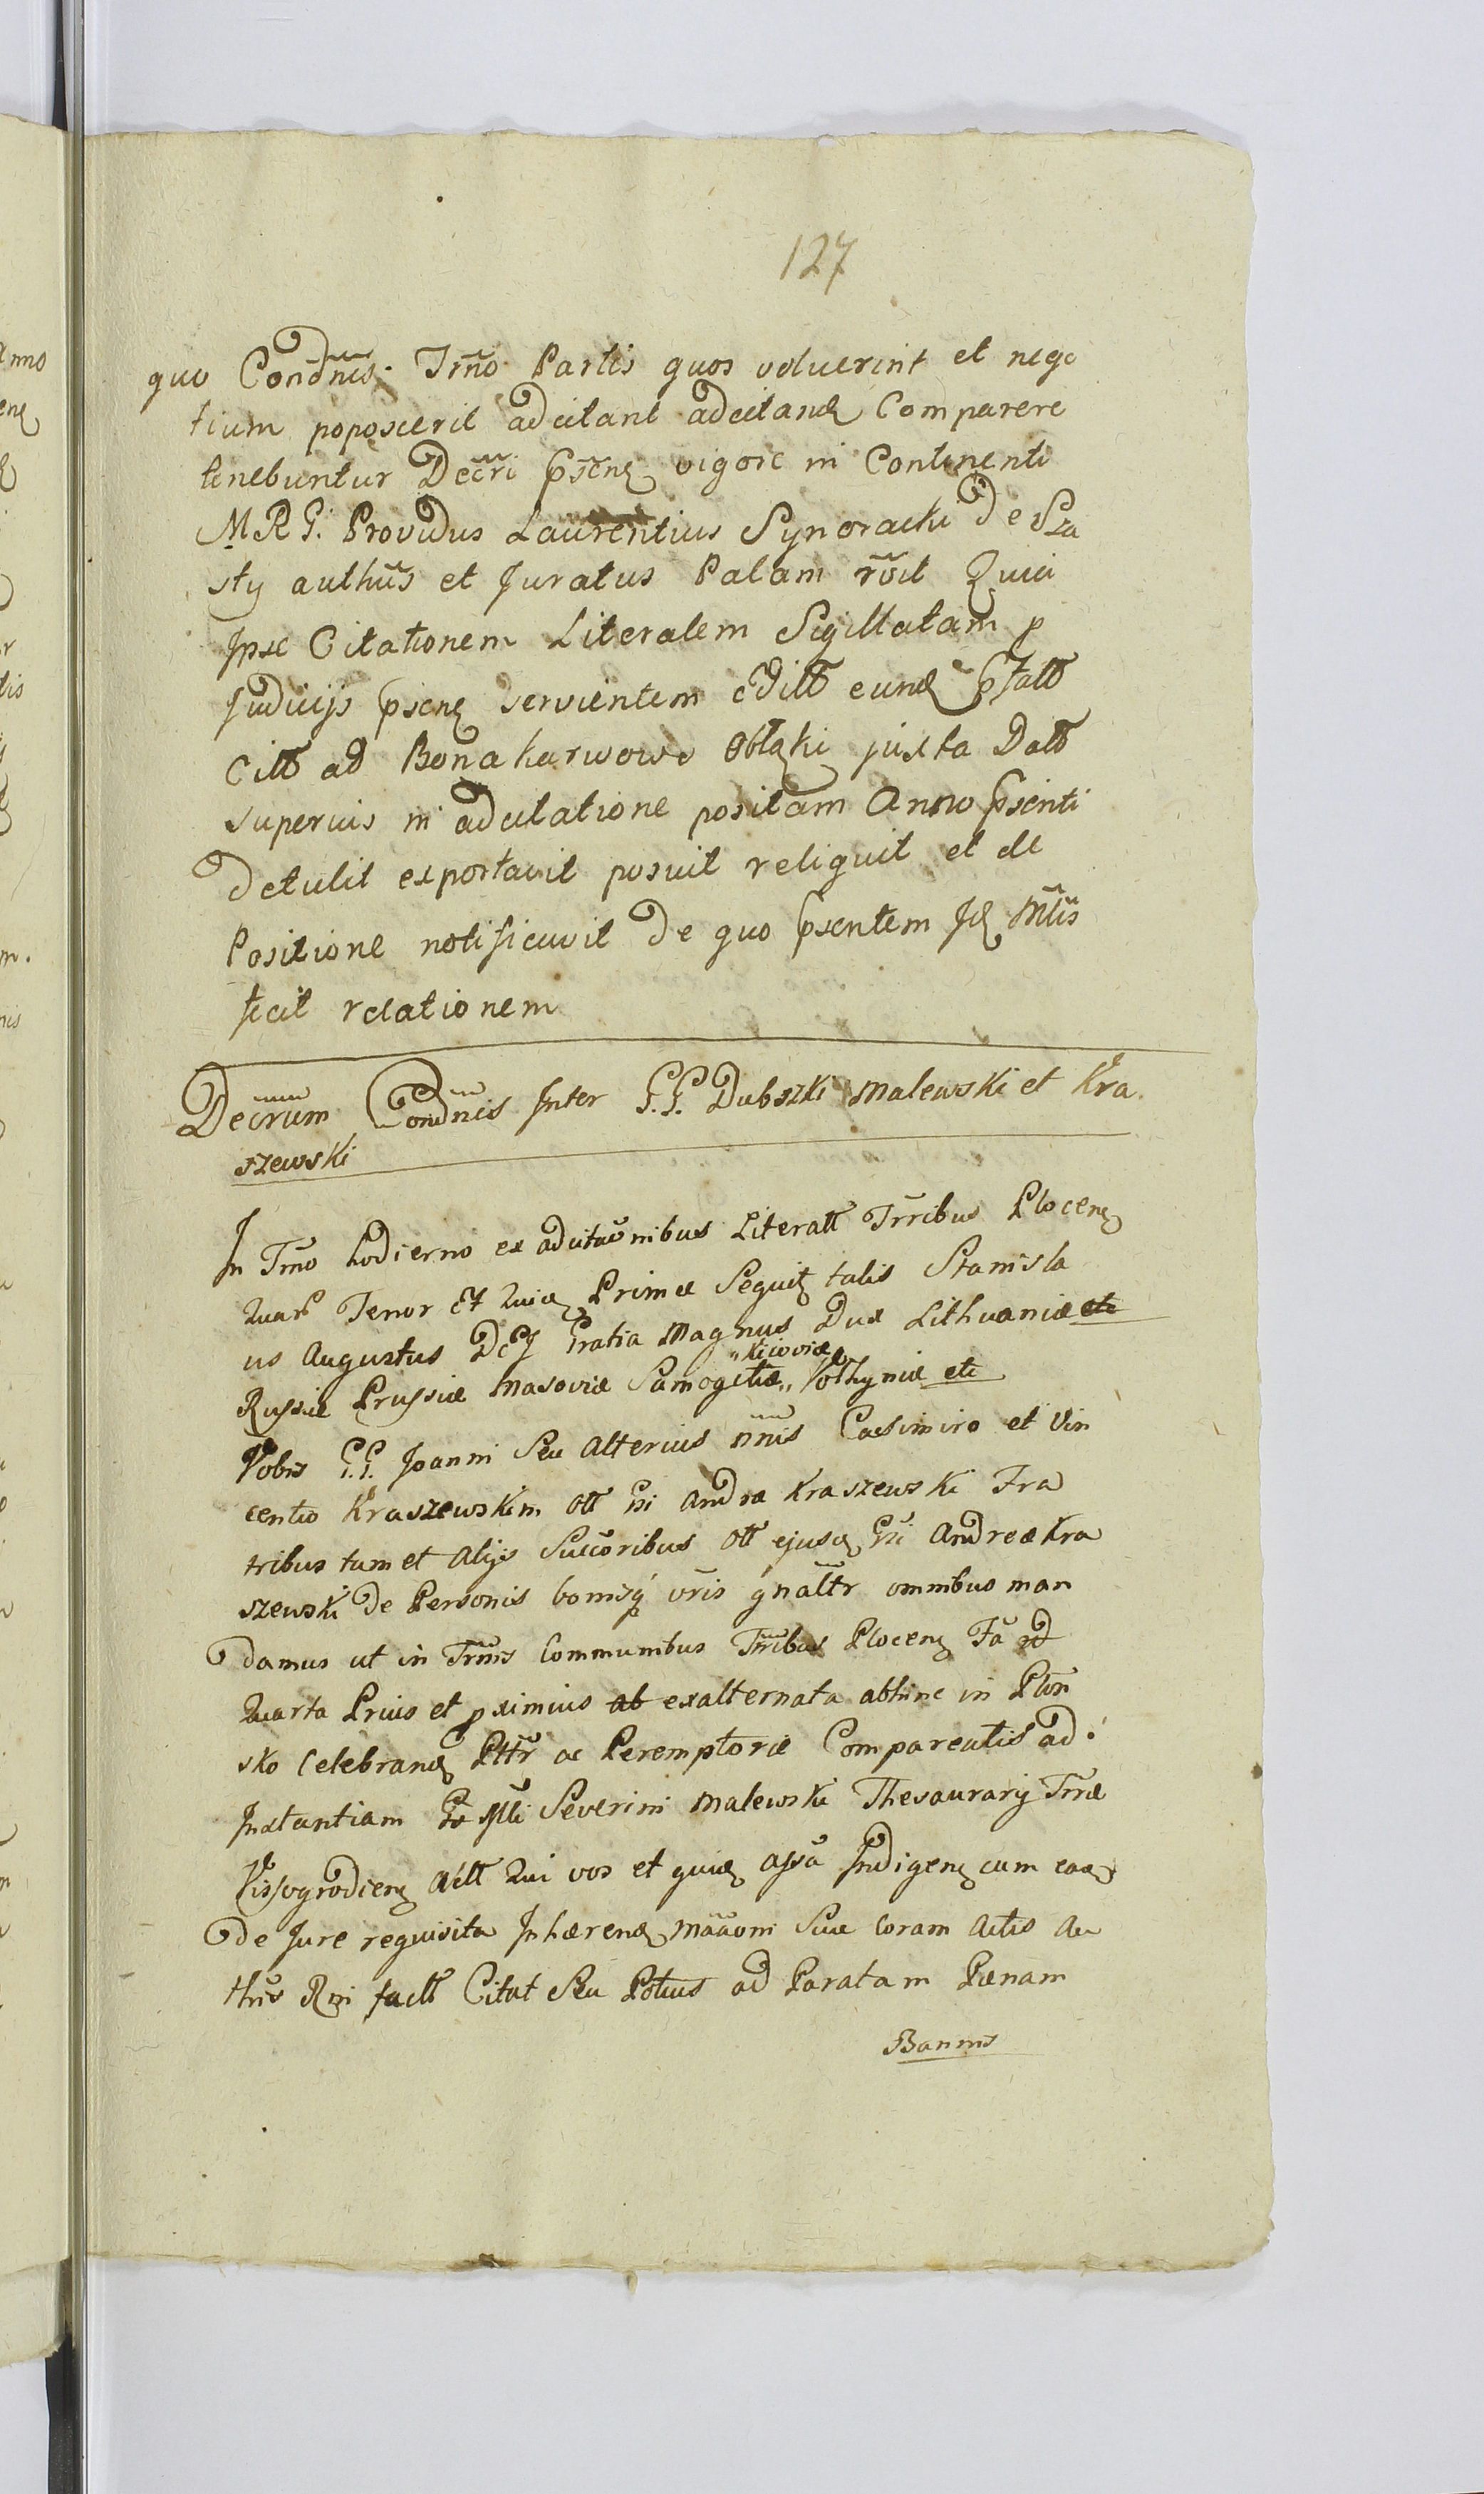 127
quo Condnis Trno Partis quos voluerint et nego
tium poposcerit adcitant adcitand Comparere
tenebuntur Decri psens vigore in Continenti
M R G. Providus Laurentius Synoracki de Sza
sty authus et Juratus Palam rvit Quia
Ipse Citationem Literalem Sigillatam p
Judicijs psens servientem editt eund
Citt ad Bona Karwowo Obłąki juxta Datt
superius in adcitatione positam Anno psenti
detulit exportavit posuit reliquit et de
Positione notificavit de quo psentem Id Mlis
fecit relationem
Decrum Condnis Inter G.G. Dubszki Malewski et Kra
szewski
In Trno hodierno ex adcitaonibus Literatt Trribus Plocens
Quar Tenor Et Quid Primæ Sequit talis Stanisla
us Augustus DEJ Gratia Magnus Dux Lithvaniæ etc
Russiæ Prussiæ Masoviæ Samogitiæ „Kijoviæ„ Volhyniæ etc
Vobis G.G. Joanni Seu alterius nnis Casimiro et Vin
centio Kraszewskim ott Gsi Andræ Kraszewski Fra
tribus tum et alijs Succoribus ott ejusd Gsi Andreæ Kra
szewski de Personis bonisq vris gnaltr omnibus man
damus ut in Trnis Communibus Trribus Plocens Fa
Quarta Prius et pximius ab exalternata abhinc in Płon
sko Celebrand Pttr ac Peremptorie Compareatis ad
Instantiam Gs Mli Severini Malewski Thesaurarij Trræ
Vissogrodiens Actt Qui vos et quid assa Indigens cum ea
de Jure requisita Inhærend maaoni Suæ Coram Actis Au
thus Rni factt Citat Seu Potius ad Paratam Pænam
Bannis